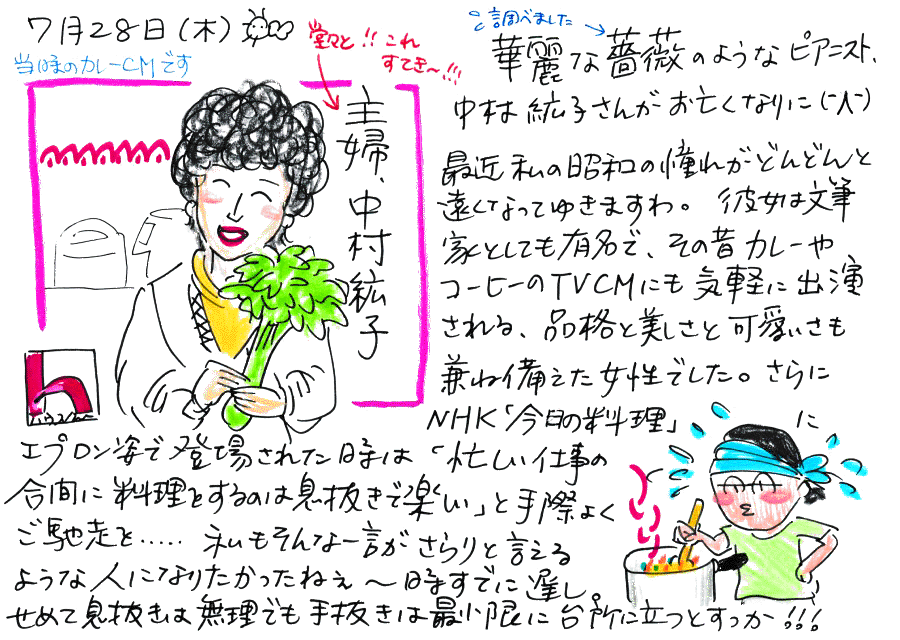 7月28日(木)
当時のカレーCMです
堂々と!!これ
すてき〜!!!
主婦、中村紘子
調べました
華麗な薔薇のようなピアニスト、
中村紘子さんがお亡くなりに(-人-)
最近私の昭和の憧れがどんどんと
遠くなってゆきますわ。彼女は文筆
家としても有名で、その昔カレーや
コーヒーのTVCMにも気軽に出演
される、品格と美しさと可愛いさも
兼ね備えた女性でした。さらに
NHK「今日の料理」に
エプロン姿で登場された時は「忙しい仕事の
合間に料理をするのは息抜きで楽しい」と手際よく
ご馳走を……私もそんな一言がさらりと言える
ような人になりたかったねぇ〜時すでに遅し。
せめて息抜きは無理でも手抜きは最小限に台所に立つとすっか!!!
h
ハウス